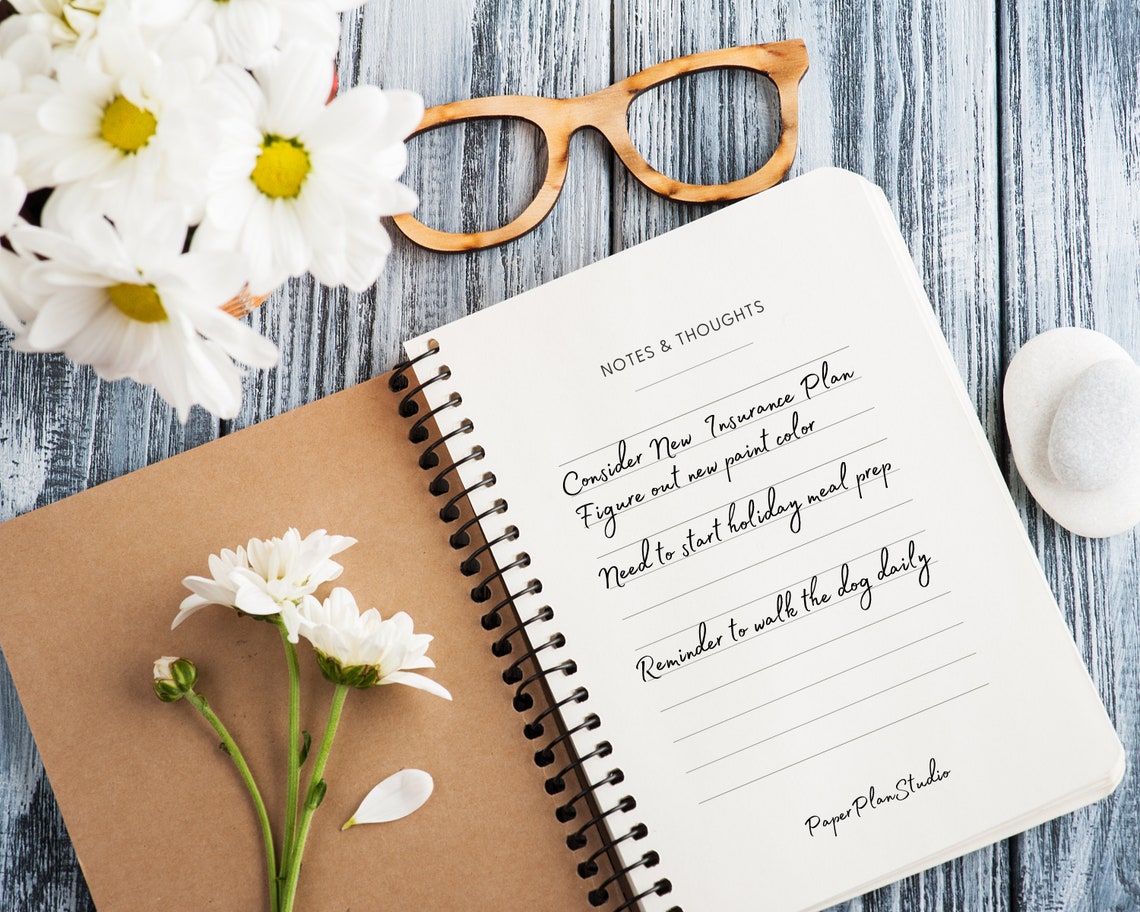 NOTES & THOUGHTS
Consider New Insurance Plan
Figure out new paint color
Need to start holiday meal prep
Reminder to walk the dog daily
PaperPlanStudio